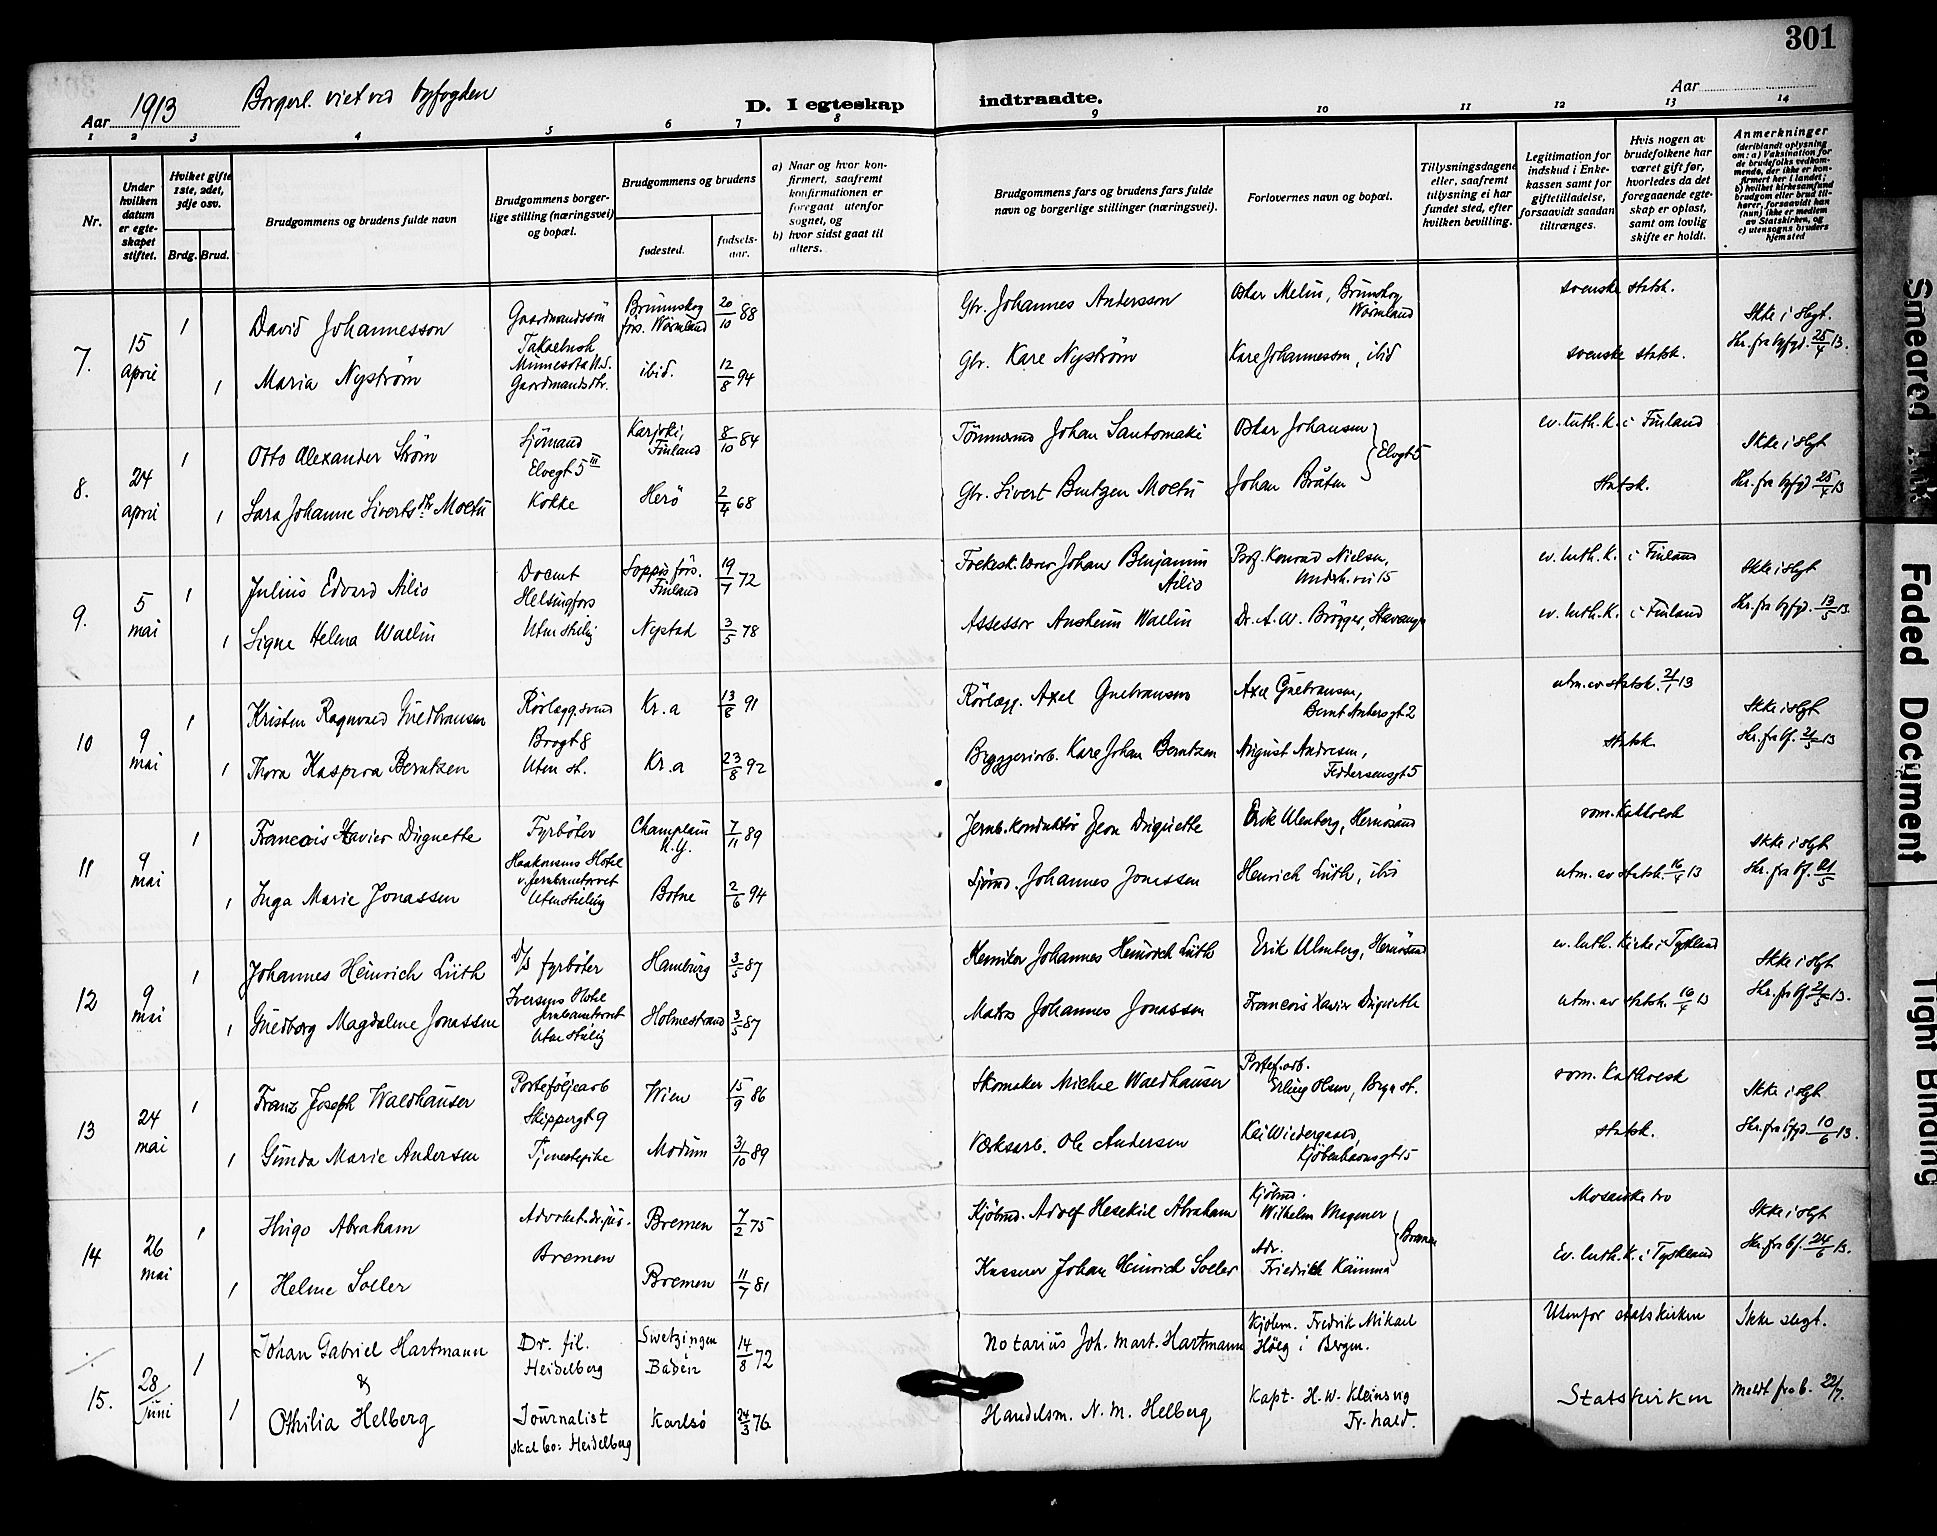 301
Aar 1913 Borgerl. viet ved byfogden
D. I egteskap indtraadte.
Aar
1 2 3 4 5 6 7 8 9 10 11 12 13 14
Nr.
Under hvilken datum er egteskapet stiftet.
Hvilket gifte 1ste, 2det, 3dje osv.
Brdg. Brud.
Brudgommens og brudens fulde navn
Brudgommens borgerlige stilling (næringsvei) og bopæl.
Brudgommens og brudens
fødested.
fødselsaar.
a) Naar og hvor konfirmert, saafremt konfirmationen er foregaat utenfor sognet, og
b) hvor sidst gaat til alters.
Brudgommens fars og brudens fars fulde navn og borgerlige stillinger (næringsvei).
Forlovernes navn og bopæl.
Tillysningsdagene eller, saafremt tillysning ei har fundet sted, efter hvilken bevilling.
Legitimation for indskud i Enkekassen samt for giftetilladelse, forsaavidt saadan tiltrænges.
Hvis nogen av brudefolkene har været gift før, hvorledes da det foregaaende egteskap er opløst, samt om lovlig skifte er holdt.
Anmerkninger
(deriblandt oplysning om: a) Vaksination for de brudefolks vedkommende, der ikke er konfirmert her i landet; b) hvilket kirkesamfund brudgom eller brud tilhører, forsaavidt han (hun) ikke er medlem av Statskirken, og c) utensogns bruders hjemsted
7. 15 april
1 David Johannesson Gaardmandssøn Brunnskog förs. Wärmland 20/10 88 Gbr. Johannes Andersson Oskar Melin, Brunskog Wärmland svenske statsk. Ikke i slegt.
Minnesota U.S.
1 Maria Nyström Gaardmandsdtr. ibid. 12/8 94 Gbr. Karl Nyström Karl Johannesson, ibid svenske statsk. Skr. fra byfgd. 25/4 13.
8. 24 april
1 Otto Alexander Strøm Sjömand Elvegt 5 III Finland 8/10 84 Tömmermd Johan Santomaki Oskar Johansen ev. luth. k. i Finland Ikke i slegt
1 Sara Johanne Siverts dtr. Moetu Kokke Herö 2/4 68 Gbr. Sivert Bentzen Moetu Johan Bråten } Elvgt 5 Statsk. Skr. fra byfgd 25/4 13
9. 5 mai
1 Julius Edvard Ailio Docent Helsingfors Loppis förs. Finland 19/7 72 Folksk. lærer Johan Benjamin Ailio Prof. Konrad Nielsen, ev. luth. k. i Finland Ikke i slegt
1 Signe Helena Wallin Uten stilling Nystad 3/5 78 Assessor Anshelm Wallin Dr. A. W. Brögger, Stavanger ev. luth. K. i Finland Skr. fra byfgd. 13/5 13.
10 9 mai
1 Kristen Ragnvald Guldbransen Rörlegg. svend Brogt 8 Kr.a 13/8 91 Rörlegg. Axel Gulbransen Axel Gulbransen, Bernt Ankersgt 2 utm. av statsk. 2/1 13 Ikke i slegt
1 Thora Kaspara Berntzen Uten st. Kr.a 23/8 92 Bryggeriarb. Karl Johan Berntzen August Andresen, Feddersensgt 5 statsk. Skr. fra bf. 21/5 13
11 9 mai
1 Francois Xavier Duquette Fyrböter Champlain N.Y. 7/11 89 Jernb. konduktör Jean Duquette Erik Ulenberg, Hernösand rom. katholsk Ikke i slegt
Haakonsens Hotel v. Jernbanetorvet
1 Inga Marie Jonassen Uten stilling Botne 2/6 94 Sjömd. Johannes Jonassen Henrich Lüth, ibid utm. av statsk. 16/4 13 Skr. fra bf. 21/5
12 9 mai
1 Johannes Heinrich Lüth D/S fyrböter Hamburg 3/5 87 Johannes Heinrich Lüth Erik Ulenberg, Hernösand ev. luth. kirke i Tyskland Ikke i slegt
Iversens Hotel Jernbanetorvet
1 Guldborg Magdalene Jonassen Uten stilling Holmestrand 3/5 87 Matros Johannes Jonassen Francois Xavier Duquette utm. av statsk. 16/4 13 Skr. fra bf 21/5 13.
13 24 mai
1 Franz Joseph Waldhauser Porteføljearb Skippergt 9 Wien 15/9 86 Skomaker Michael Waldhauser Portef. arb. Erling Olsen, Bryn st. rom. Katholsk Ikke i slegt
1 Gunda Marie Andersen Tjenestepike Modum 31/10 89 Verksarb. Ole Andersen Kjöbenhavnsgt 15 statsk. Skr. fra byfgd. 10/6 13.
14 26 mai
1 Hugo Abraham Advokat. dr. jur. Bremen 7/2 75 Kjöbmd. Adolf Hesekiel Abraham Kjöbmd. Wilhelm Wagener Mosaiske tro Ikke i slegt
Bremen
1 Helene Soller Bremen 11/7 81 Kasserer Johan Heinrich Soller Adv. Friedrich } Bremen Ev. luth. K. i Tyskland Skr. fra bf. 24/6 13.
15. 28/Juni
1 Johan Gabriel Hartmann Dr. fil. Heidelberg Swetzingen Baden 14/8 72 Notarius Joh. Mart. Hartmann Kjöbm. Fredrik Mikael Höeg i Bergen. Utenfor statskirken Ikke slegt.
&
1 Othilia Helberg Journalist skal bo: Heidelberg Karlsö 24/3 76 Handelsm. N. M. Helberg Kapt. H. W. Kleinsvig Fr.hald. Statskirken meldt fra b. 22/7.
Smeared Ink
Faded Document
Tight Binding